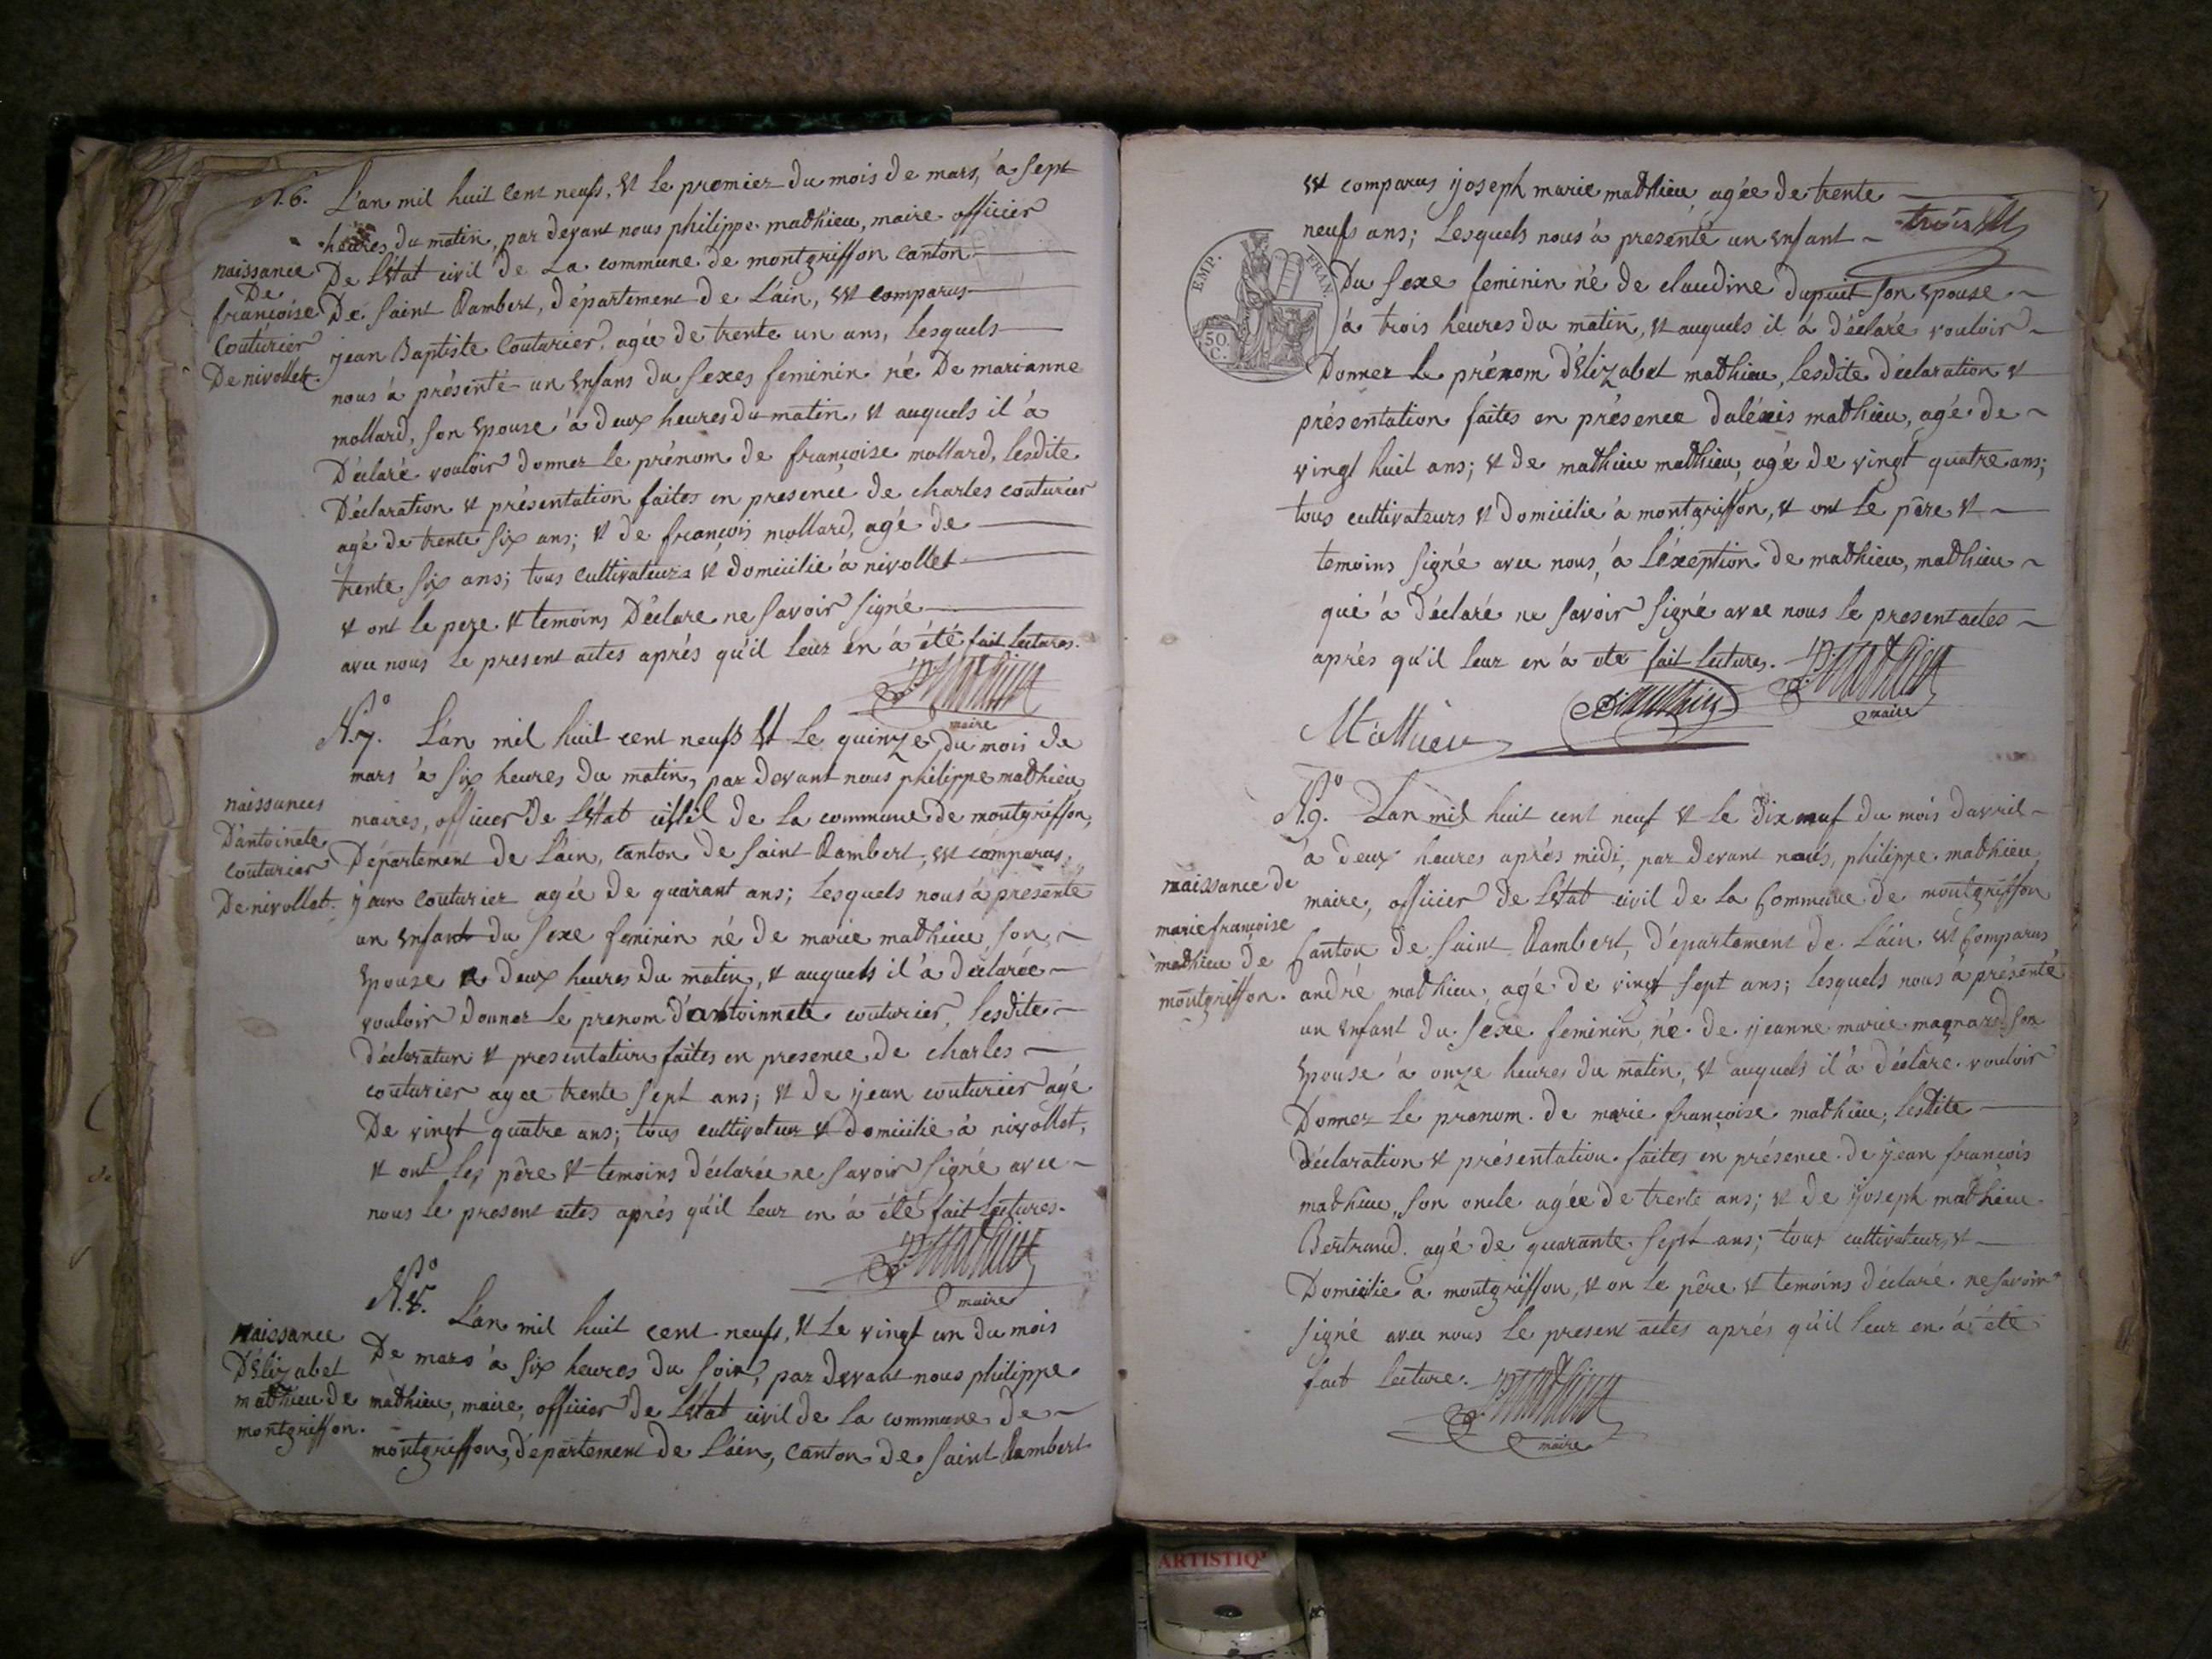 N. 6. L'an mil huit cent neufs, et le premier du mois de mars, à sept
heures du matin, par devant nous philippe mathieu, maire officier
naissance
De
françoise
Couturier
De nivollet.
De L'état civil de La commune de montgriffon canton
De Saint Rambert, département de L'ain, est comparus
jean Baptiste Couturier, agée de trente un ans, lesquels
nous à présenté un enfans du sexes feminin né De marianne
mollard, son epouse à deux heures du matin, et auquels il à
Déclaré vouloir donner le prénom de françoise mollard, lesdite
Déclaration et présentation faites en presence de charles couturier
agé de trente six ans; et de françois mollard, agé de
trente six ans; tous cultivateurs et domicilié à nivollet
et ont le pere et temoins Déclare ne savoir signé
avec nous le present actes aprés qu'il leur en à été fait lectures.
P. Mathieu
maire
N.º 7. L'an mil huit cent neufs et Le quinze du mois de
mars à six heures du matin, par devant nous philippe mathieu
naissances
D'antoinete
couturier
De nivollet.
maires, officier de L'état civil de La commune de montgriffon,
Département de L'ain, canton de Saint Rambert, est comparus,
jean couturier agée de quarant ans; lesquels nous à presenté
un enfant du sexe feminin né de marie mathieu, son
epouse a deux heures du matin, et auquels il à declarée
vouloir donner le prenom d'antoinnete couturier, lesdite
declaration et presentation faites en presence de charles
couturier agee trente sept ans; et de jean couturier agé
De vingt quatre ans; tous cultivateur et domicilié à nivollet,
et ont les père et temoins déclarée ne savoir signé avec
nous le present actes aprés qu'il leur en à été fait lectures.
P. Mathieu
maire
N.º 8. L'an mil huit cent neufs, et Le vingt un du mois
naissance
D'Elizabet
mathieu de
montgriffon.
De mars à six heures du soir, par devant nous philippe
mathieu, maire, officier de L'état civil de la commune de
montgriffon, département de L'ain, canton de Saint Rambert
est comparus joseph marie mathieu, agée de trente
trois
neufs ans; Lesquels nous à presenté un enfant
EMP. FRAN.
50 C.
Du sexe feminin né de claudine dupuit son epouse
à trois heures du matin, et auquels il à déclaré vouloir
Donner le prénom d'Elizabet mathieu, lesdite déclaration et
présentation faites en présence d'aléxis mathieu, agé de
vingt huit ans; et de mathieu mathieu, agé de vingt quatre ans;
tous cultivateurs et domicilié à montgriffon, et ont le père et
temoins signé avec nous, à l'éxeption de mathieu, mathieu
qui à déclaré ne savoir signé avec nous le present actes
aprés qu'il leur en à été fait lectures.
P. Mathieu
maire
Mathieu
N.º 9. L'an mil huit cent neuf et le dix neuf du mois d'avril
à deux heures aprés midi, par devant nous, philippe mathieu
naissance de
marie françoise
mathieu de
montgriffon.
maire, officier de L'état civil de la Commune de montgriffon
Canton de Saint Rambert, département de L'ain est Comparus
andré mathieu, agé de vingt sept ans; lesquels nous à présenté
un enfant du sexe feminin né de jeanne marie magnard, son
epouse à onze heures du matin, et auquels il à déclaré vouloir
Donner le prenom de marie françoise mathieu, lesdite
déclaration et présentation faites en présence de jean françois
mathieu, son oncle agée de trente ans; et de joseph mathieu
Bertrand agé de quarante sept ans; tous cultivateurs, et
Domicilié à montgriffon, et on le père et temoins déclaré ne savoir
signé avec nous le present actes aprés qu'il leur en à été
fait lecture.
P. Mathieu
maire
ARTISTIQ